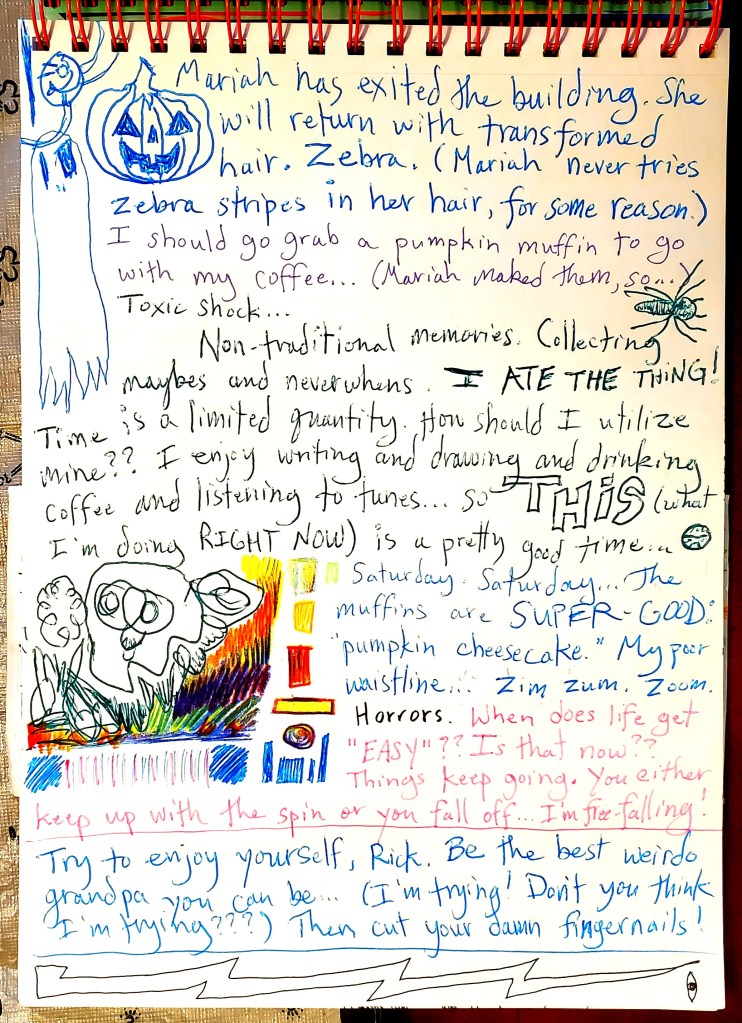 Mariah has exited the building. She
will return with transformed
hair. Zebra. (Mariah never tries
zebra stripes in her hair, for some reason.)
I should go grab a pumpkin muffin to go
with my coffee... (Mariah maked them, so...)
Toxic shock...
Non-traditional memories. Collecting
maybes and neverwhens. I ATE THE THING!
Time is a limited quantity. How should I utilize
mine?? I enjoy writing and drawing and drinking
coffee and listening to tunes... so THIS (what
I'm doing RIGHT NOW) is a pretty good time...
Saturday. Saturday... The
muffins are SUPER-GOOD:
"pumpkin cheesecake." My poor
waistline... Zim Zum. Zoom.
Horrors. When does life get
"EASY"?? Is that now??
Things keep going. You either
keep up with the spin or you fall off... I'm free-falling!
Try to enjoy yourself, Rick. Be the best weirdo
grandpa you can be... (I'm trying! Don't you think
I'm trying???) Then cut your damn fingernails!